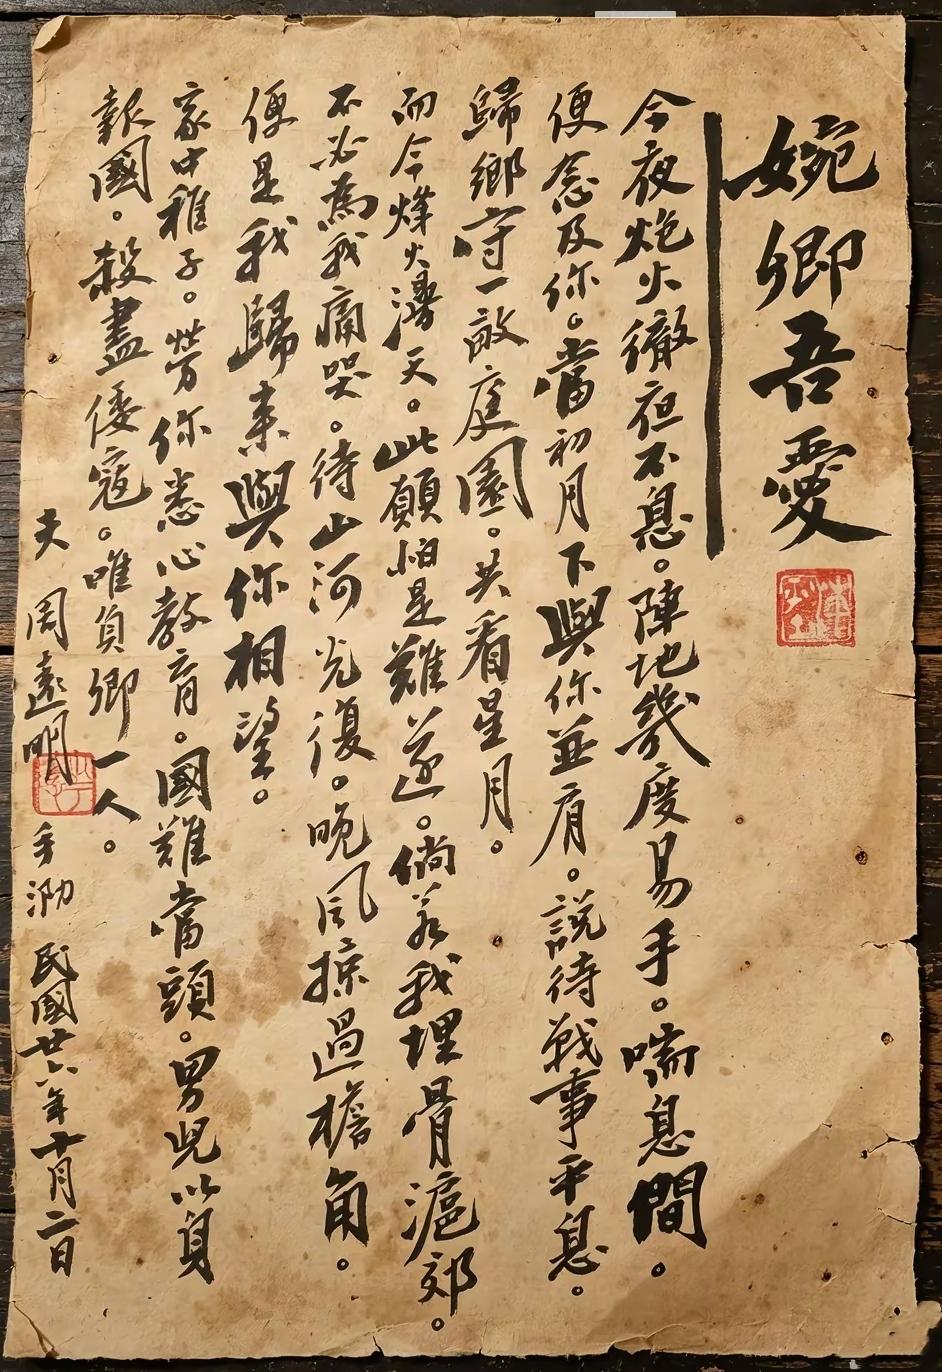 婉卿吾愛
今夜炮火徹夜不息。陣地幾度易手。喘息間。
便念及你。當初月下與你並肩。說待戰事平息。
歸鄉守一畝庭園。共看星月。
而今烽火漫天。此願怕是難遂。倘若我埋骨滬郊。
不必為我痛哭。待山河光復。晚風掠過檐角。
便是我歸來與你相望。
家中稚子。勞你悉心教育。國難當頭。男兒以身
報國。殺盡倭寇。唯負卿一人。
夫 周遠明 手泐 民國廿六年十月二日